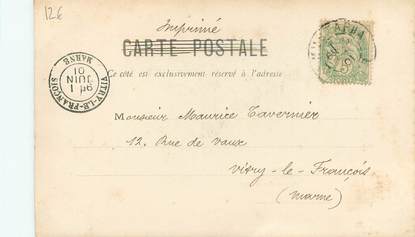 12€
Imprimé
CARTE POSTALE
Ce côté est exclusivement réservé à l'adresse
VITRY-LE-FRANÇOIS
MARNE
1
JUIN
01
Monsieur Maurice Tavernier
12, Rue de Vaux
Vitry-le-François
(Marne)